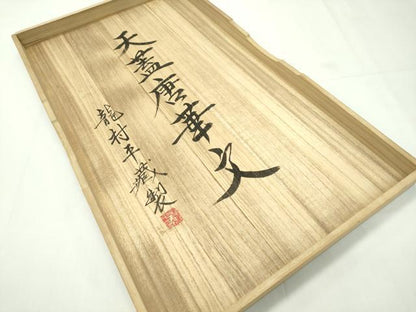 天蓋唐華文
龍村平藏製